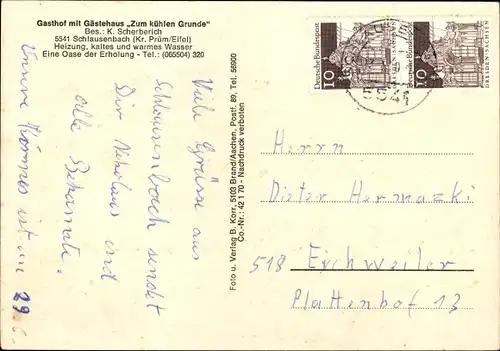 Gasthof mit Gästehaus „Zum kühlen Grunde“
Bes.: K. Scherberich
5541 Schlausenbach (Kr. Prüm/Eifel)
Heizung, kaltes und warmes Wasser
Eine Oase der Erholung - Tel.: (065504) 320
Viele Grüsse aus
Schlausenbach sendet
Dir Nikolaus und
alle Bekannte.
Unsere Kirmes ist am 29.6.
Foto u. Verlag B. Korr, 5103 Brand/Aachen, Postf. 89, Tel. 56900
Co.-Nr.: 42 1 70 - Nachdruck verboten
Deutsche Bundespost
10
DRESDEN-SACHSEN
Deutsche Bundespost
10
DRESDEN-SACHSEN
Herrn
Dieter Hermazki
518 Eschweiler
Plattenhof 13